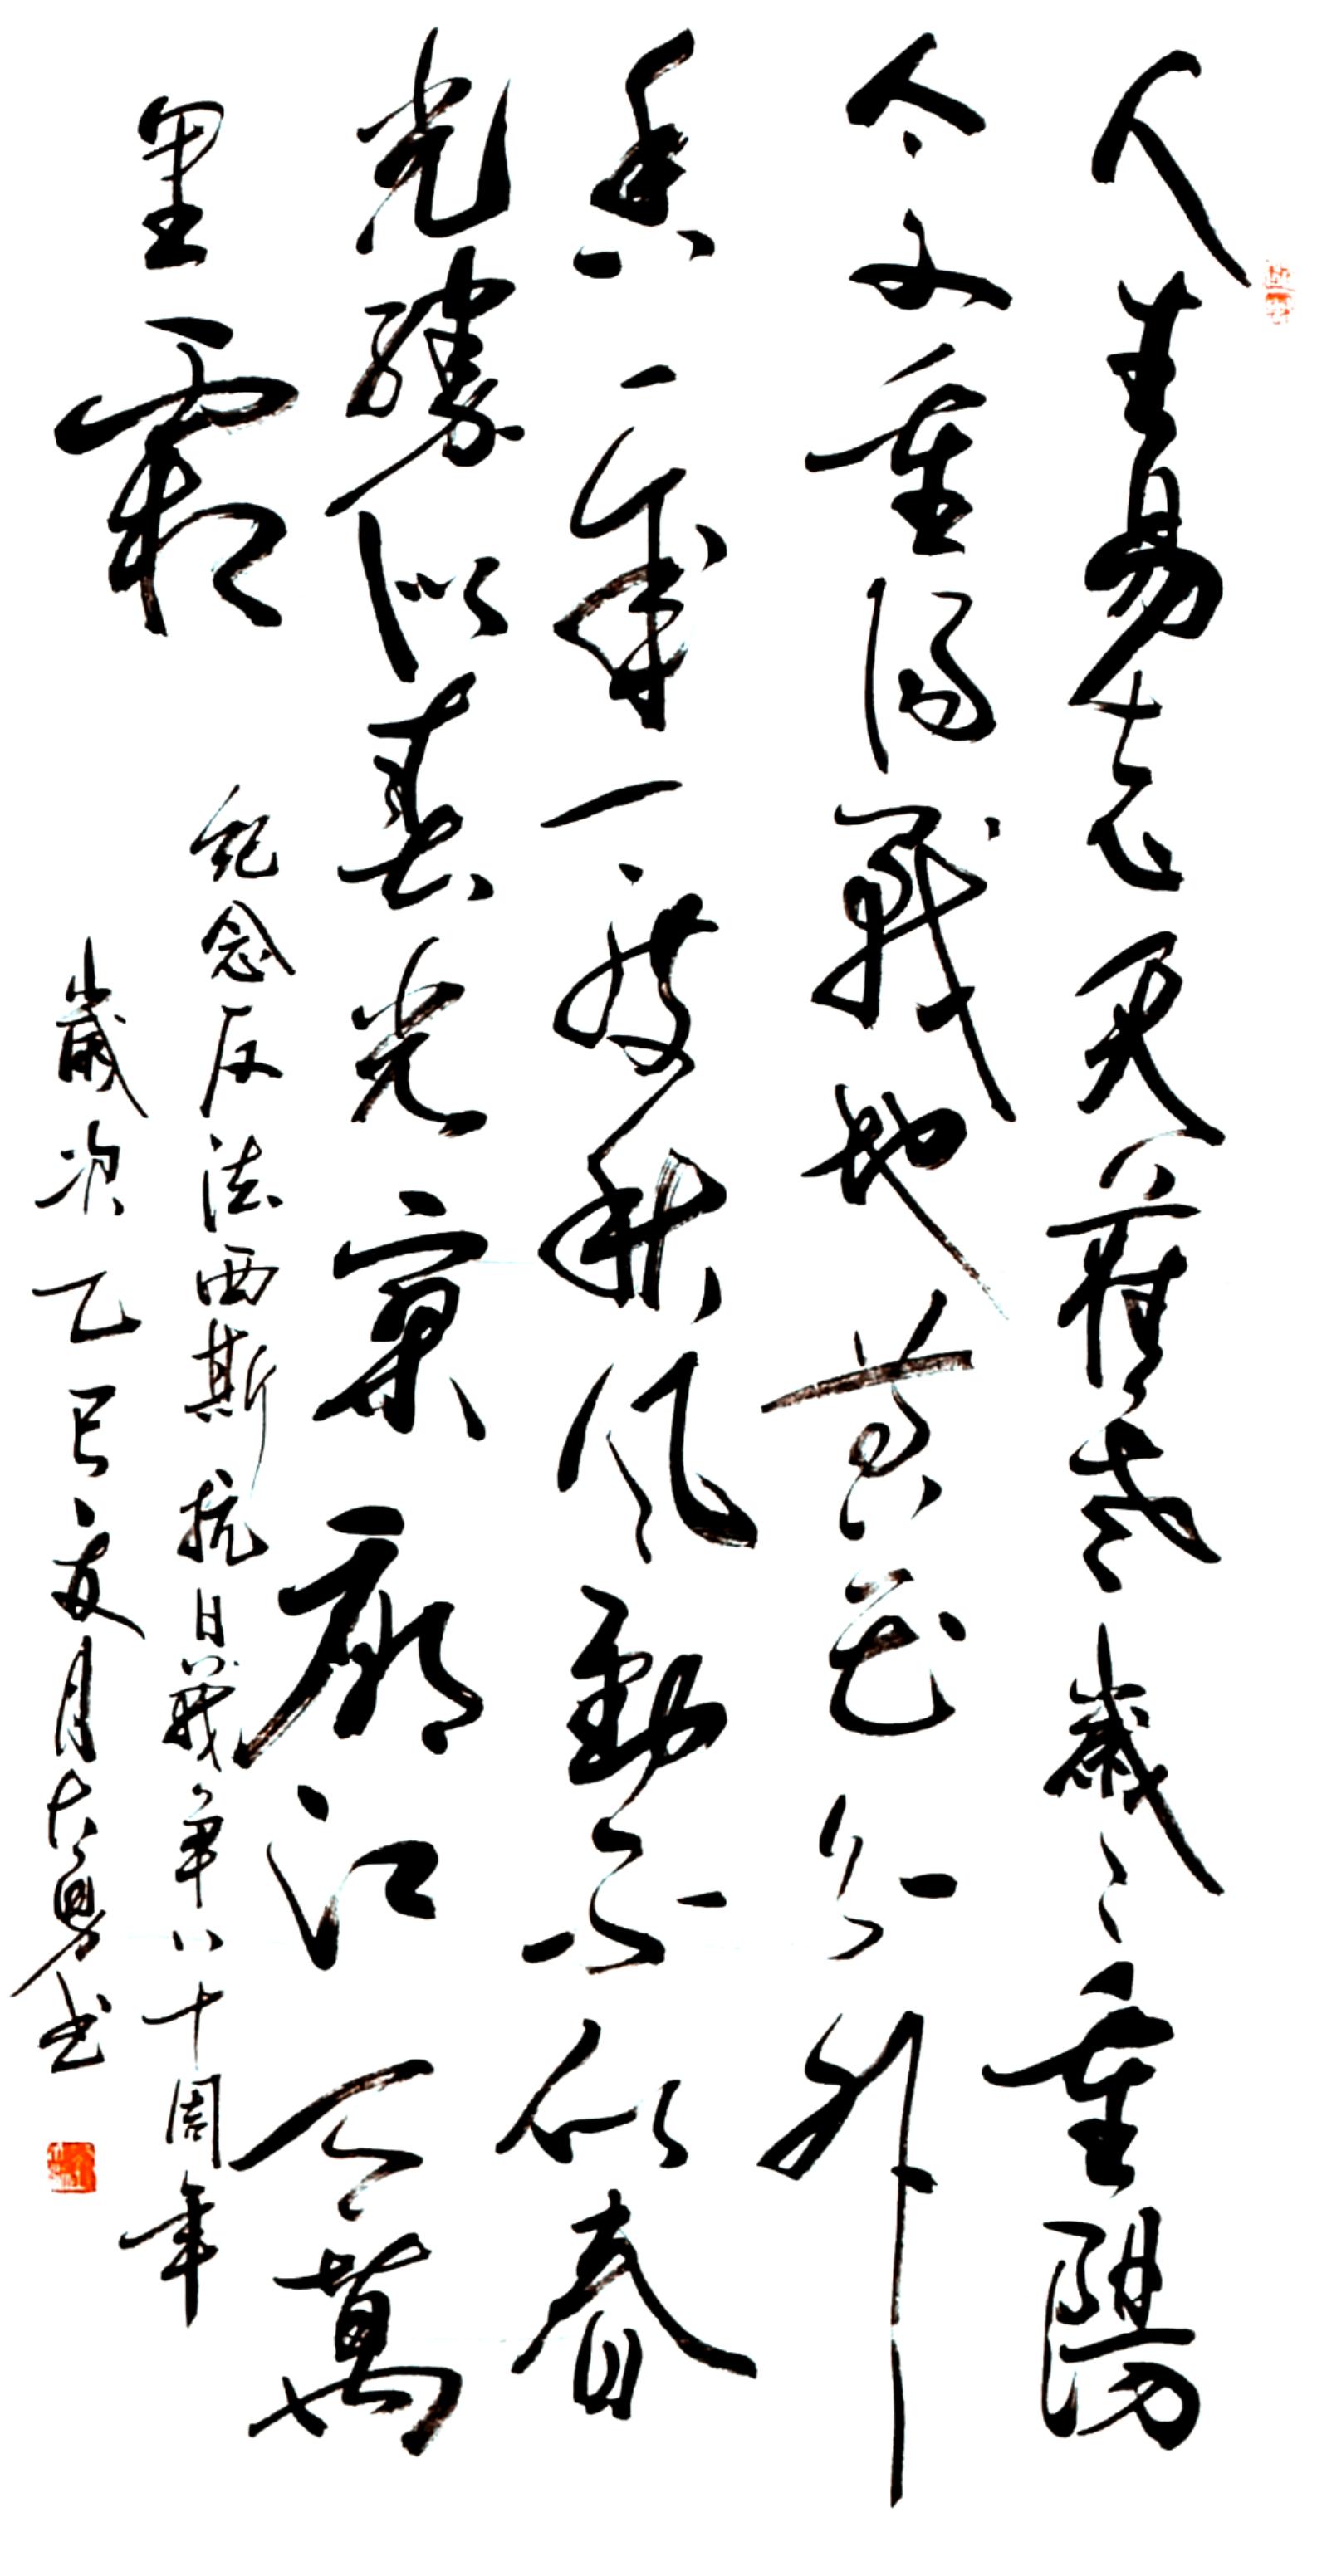 人生易老天難老歲々重陽
今又重陽戰地黃花分外
香一年一度秋風勁不似春
光勝似春光寥廓江天萬
里霜
紀念反法西斯抗日戰争八十周年
歲次乙巳夏月大勇书